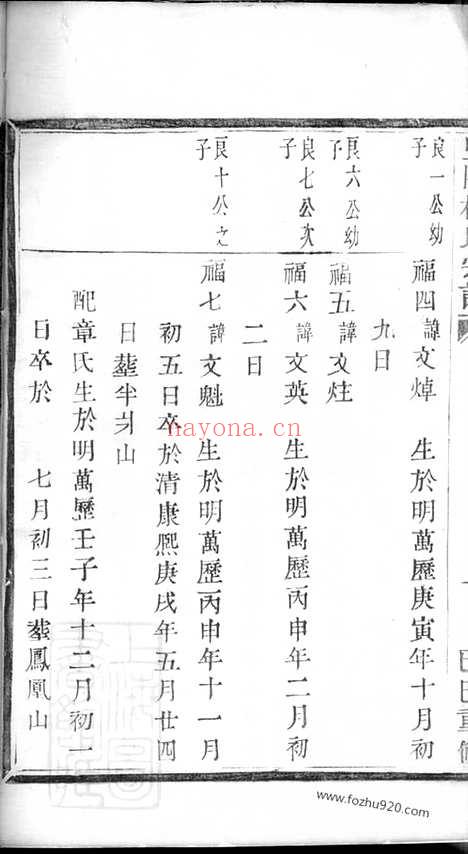 良一公幼子
福四 諱文焯 生於明萬曆庚寅年十月初
九日
良六公幼子
福五 諱文炷
良七公次子
福六 諱文英 生於明萬曆丙申年二月初
二日
良十公之子
福七 諱文魁 生於明萬曆丙申年十一月
初五日卒於清康熙庚戌年五月廿四
日塟半爿山
配章氏生於明萬曆壬子年十二月初一
日卒於 七月初三日塟鳳凰山
nayona.cn
www.fozhu920.com